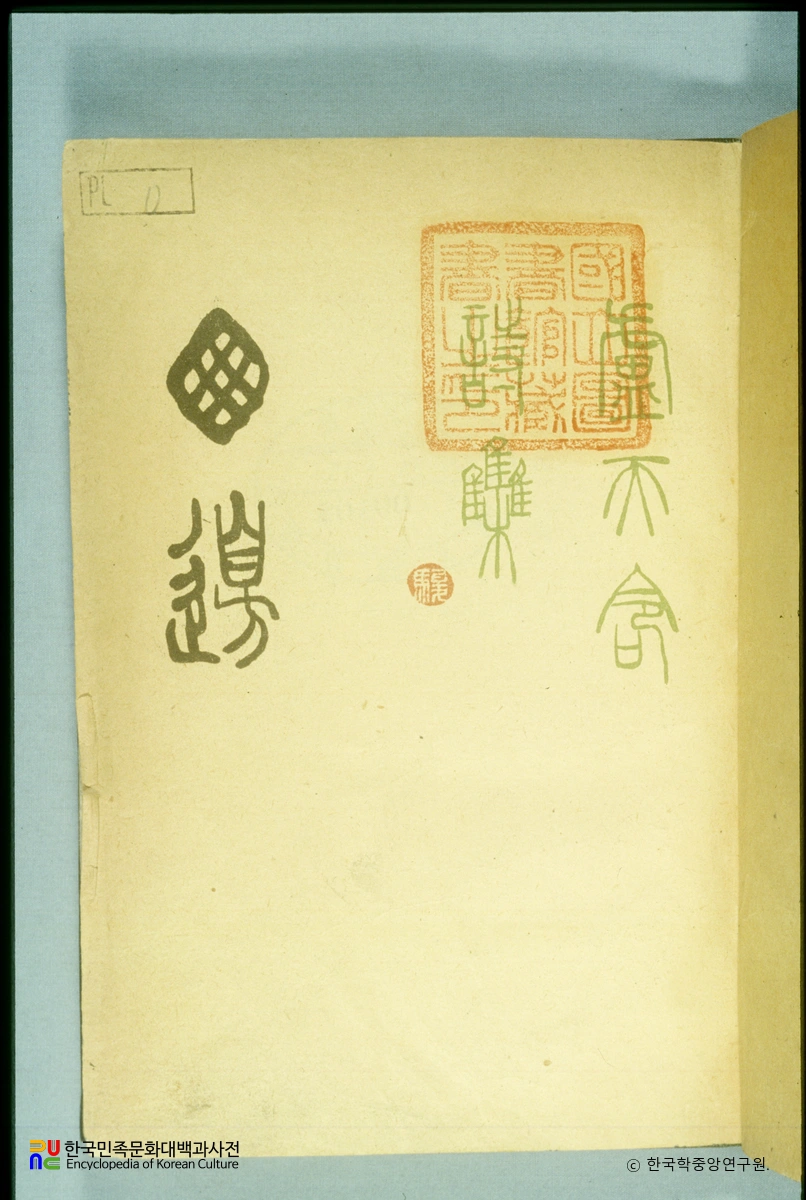 盧天命
詩集
窓邊
國立圖
書館藏
書之印
PL
한국민족문화대백과사전
Encyclopedia of Korean Culture
ⓒ 한국학중앙연구원.